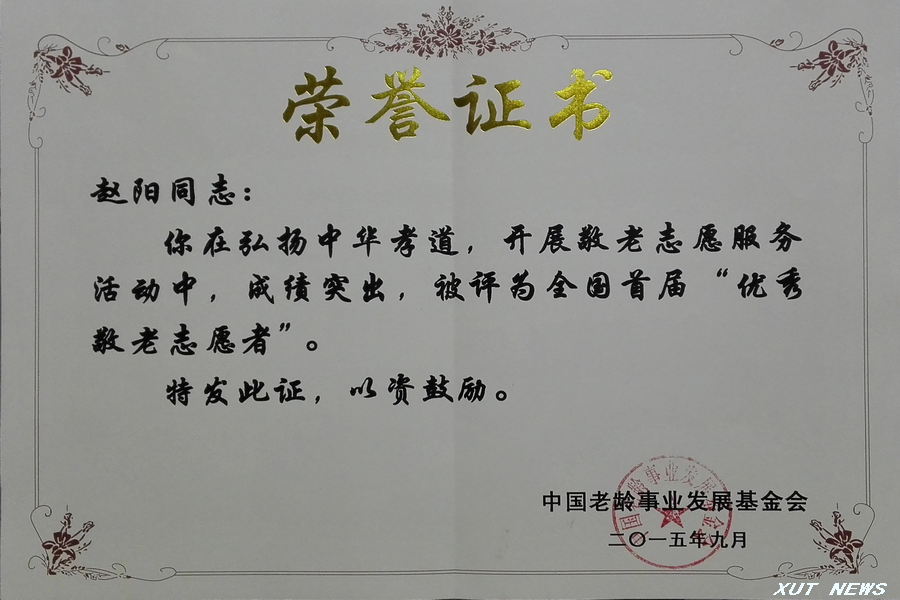 荣誉证书
赵阳同志：
你在弘扬中华孝道，开展敬老志愿服务
活动中，成绩突出，被评为全国首届“优秀
敬老志愿者”。
特发此证，以资鼓励。
中国老龄事业发展基金会
二〇一五年九月
XUT NEWS